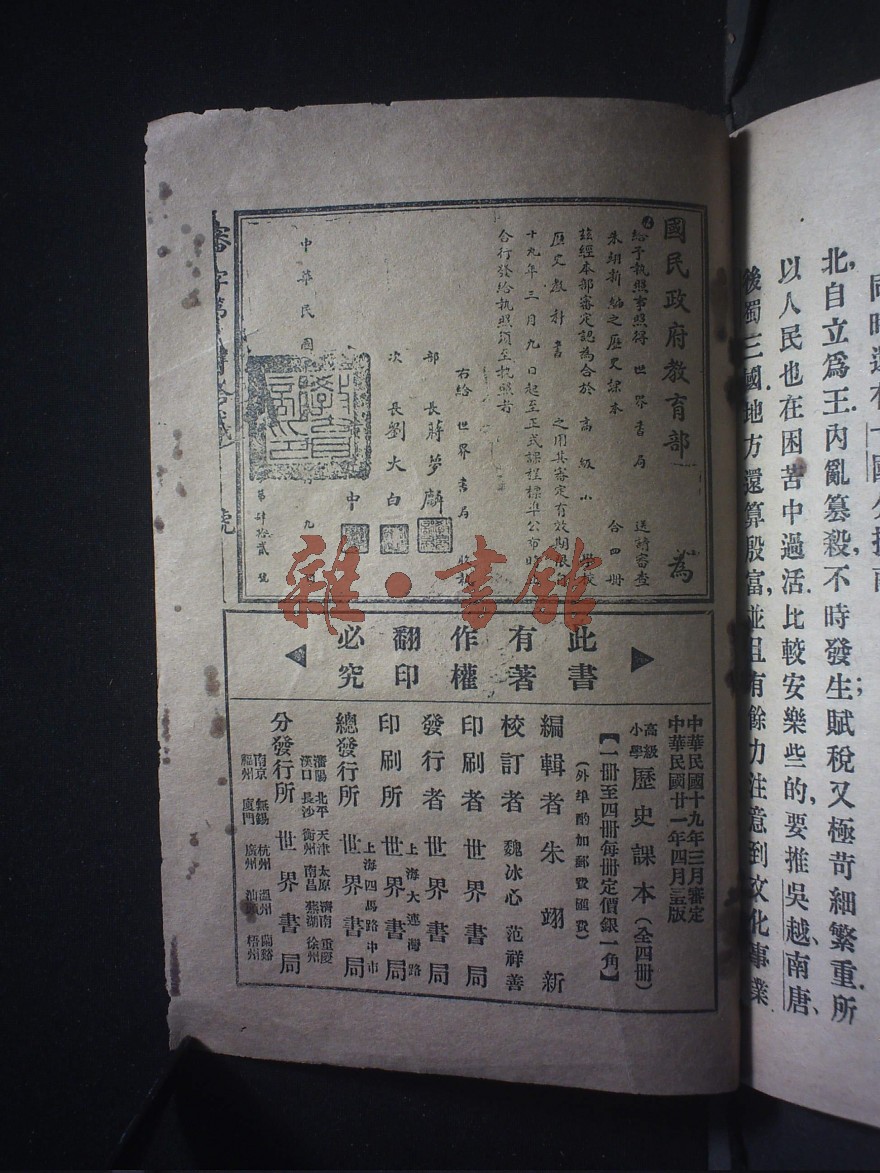 同時還有
北自立爲王，內亂篡殺，不時發生；賦稅又極苛細繁重。所
以人民也在困苦中過活。比較安樂些的，要推吳越、南唐、
後蜀三國，地方還算殷富，並且有餘力注意到文化事業。
國民政府教育部 為
給予執照事照得 世界書局 送請審查
朱翊新編之歷史課本 合四冊
茲經本部審定認為合於 高級小學校
歷史教科書 之用其審定有效期限自
十九年三月九日起至正式課程標準公布時止
合行發給執照須至執照者
右給 世界書局 收執
部長蔣夢麟
次長劉大白
中
中華民國 九
第肆拾貳號
審字第 號
雜·書館
此書
有著
作權
翻印
必究
中華民國十九年三月審定
中華民國廿一年四月三五版
高級小學 歷史課本（全四冊）
【一冊至四冊每冊定價銀一角】
（外埠酌加郵費匯費）
編輯者 朱翊新
校訂者 魏冰心 范祥善
印刷者 世界書局
發行者 世界書局
上海大連灣路
印刷所 世界書局
上海四馬路中市
總發行所 世界書局
瀋陽 北平 天津 太原 濟南 重慶
漢口 長沙 衡州 南昌 蕪湖 徐州
分發行所 世界書局
南京 無錫 杭州 溫州 蘭谿
福州 廈門 廣州 汕頭 梧州